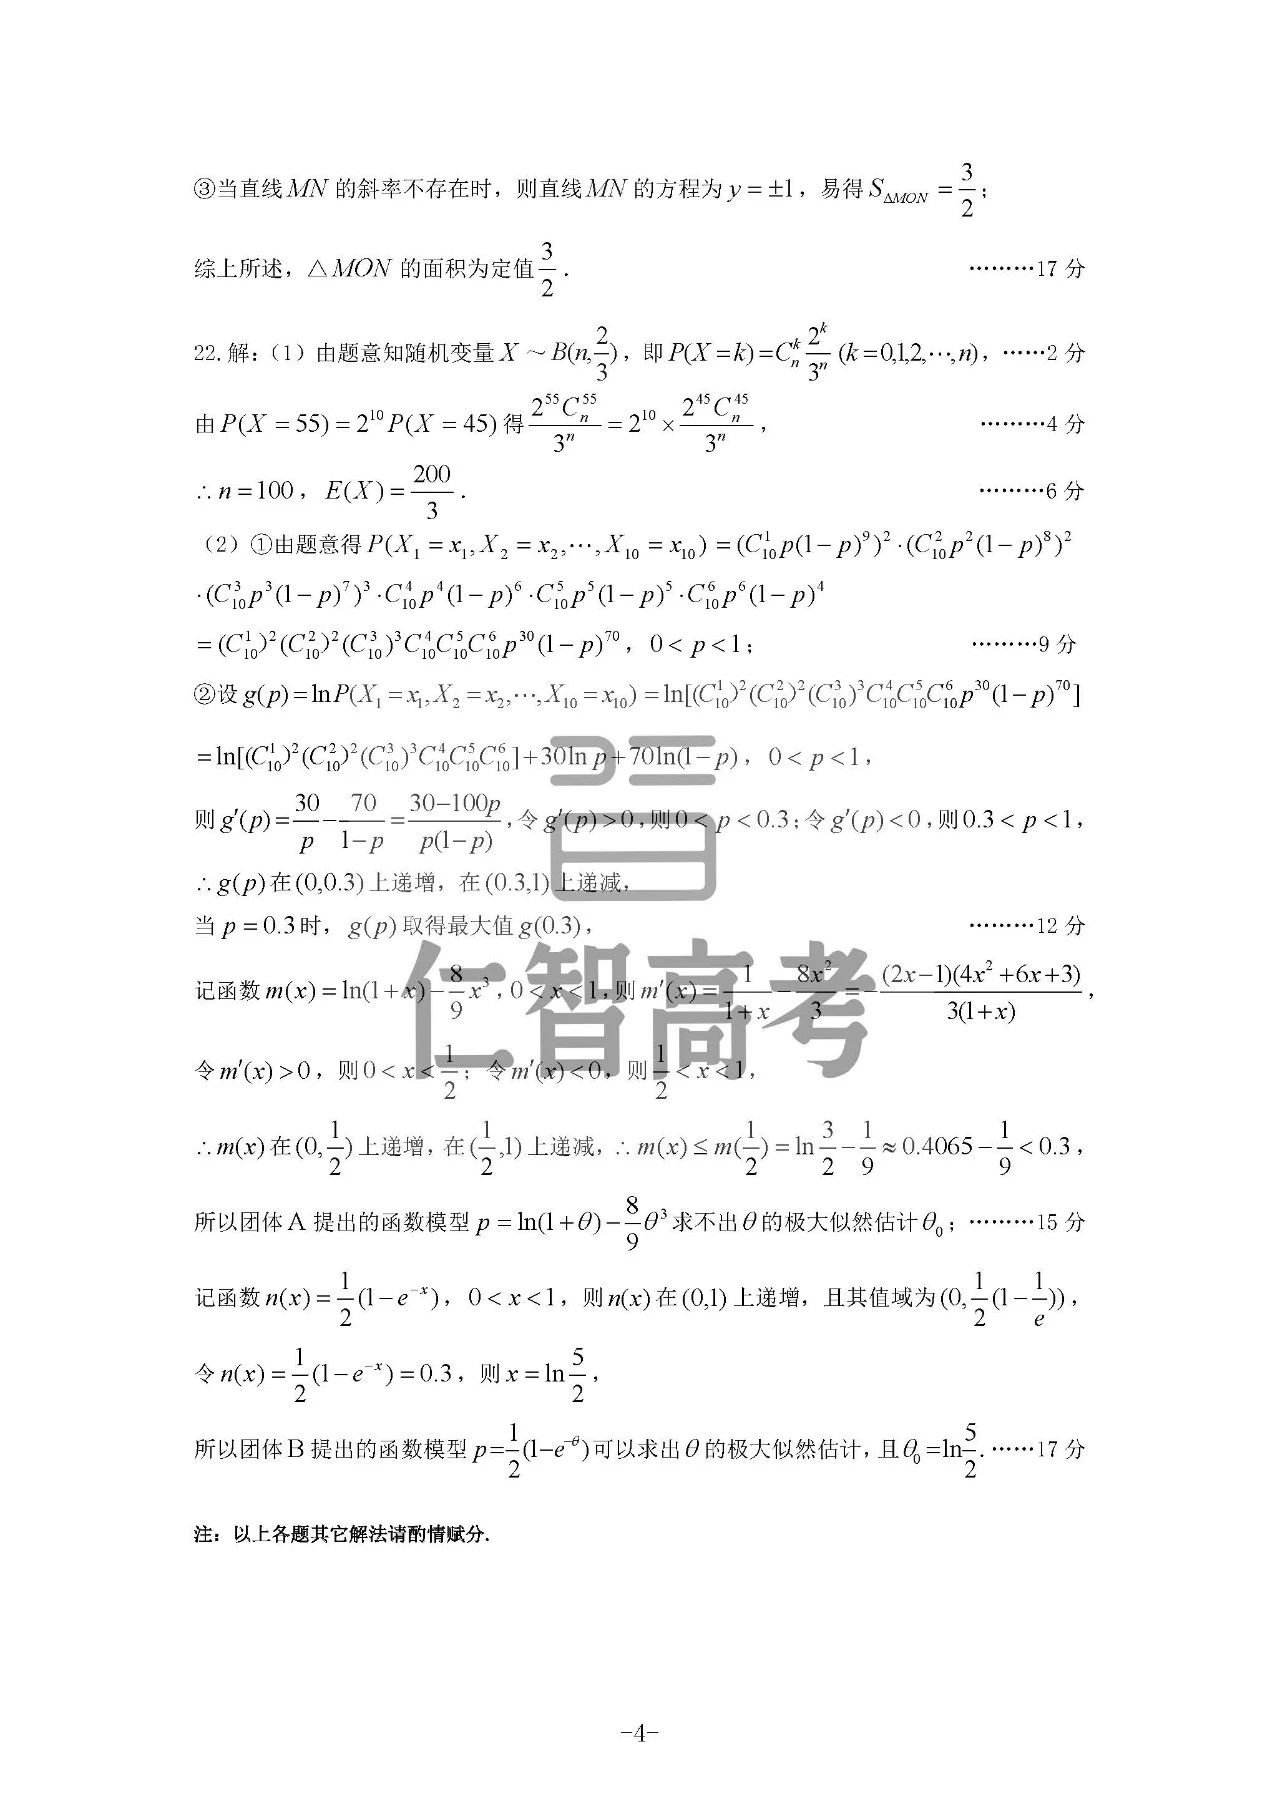 ③当直线MN 的斜率不存在时，则直线MN 的方程为 y = ±1，易得 S_{△MON} = 3/2；
综上所述，△MON 的面积为定值 3/2 . ………17 分
22.解：（1）由题意知随机变量 X ~ B(n, 2/3)，即 P(X = k) = C_n^k 2^k/3^n (k = 0,1,2,⋯,n)，……2 分
由 P(X = 55) = 2^{10} P(X = 45) 得 2^{55}C_n^{55}/3^n = 2^{10} × 2^{45}C_n^{45}/3^n， ………4 分
∴ n = 100，E(X) = 200/3 . ………6 分
（2）①由题意得 P(X_1 = x_1, X_2 = x_2, ⋯, X_{10} = x_{10}) = (C_{10}^1 p(1 − p)^9)^2 · (C_{10}^2 p^2(1 − p)^8)^2
· (C_{10}^3 p^3(1 − p)^7)^3 · C_{10}^4 p^4(1 − p)^6 · C_{10}^5 p^5(1 − p)^5 · C_{10}^6 p^6(1 − p)^4
= (C_{10}^1)^2(C_{10}^2)^2(C_{10}^3)^3 C_{10}^4 C_{10}^5 C_{10}^6 p^{30}(1 − p)^{70}，0 < p < 1； ………9 分
②设 g(p) = ln P(X_1 = x_1, X_2 = x_2, ⋯, X_{10} = x_{10}) = ln[(C_{10}^1)^2(C_{10}^2)^2(C_{10}^3)^3 C_{10}^4 C_{10}^5 C_{10}^6 p^{30}(1 − p)^{70}]
= ln[(C_{10}^1)^2(C_{10}^2)^2(C_{10}^3)^3 C_{10}^4 C_{10}^5 C_{10}^6] + 30ln p + 70ln(1 − p)，0 < p < 1，
则 g′(p) = 30/p − 70/(1−p) = (30−100p)/(p(1−p))，令 g′(p) > 0，则0 < p < 0.3；令 g′(p) < 0，则0.3 < p < 1，
∴ g(p) 在 (0,0.3) 上递增，在 (0.3,1) 上递减，
当 p = 0.3 时，g(p) 取得最大值 g(0.3)， ………12 分
记函数 m(x) = ln(1 + x) − 8/9 x^3，0 < x < 1，则 m′(x) = 1/(1+x) − 8x^2/3 = − (2x−1)(4x^2+6x+3)/(3(1+x))，
令 m′(x) > 0，则 0 < x < 1/2；令 m′(x) < 0，则 1/2 < x < 1，
∴ m(x) 在 (0, 1/2) 上递增，在 (1/2,1) 上递减，∴ m(x) ≤ m(1/2) = ln 3/2 − 1/9 ≈ 0.4065 − 1/9 < 0.3，
所以团体 A 提出的函数模型 p = ln(1 + θ) − 8/9 θ^3 求不出 θ 的极大似然估计 θ_0；………15 分
记函数 n(x) = 1/2 (1 − e^{−x})，0 < x < 1，则 n(x) 在 (0,1) 上递增，且其值域为 (0, 1/2 (1 − 1/e))，
令 n(x) = 1/2 (1 − e^{−x}) = 0.3，则 x = ln 5/2，
所以团体 B 提出的函数模型 p = 1/2 (1−e^{−θ}) 可以求出 θ 的极大似然估计，且 θ_0 = ln 5/2 . ……17 分
注：以上各题其它解法请酌情赋分.
仁智高考
-4-